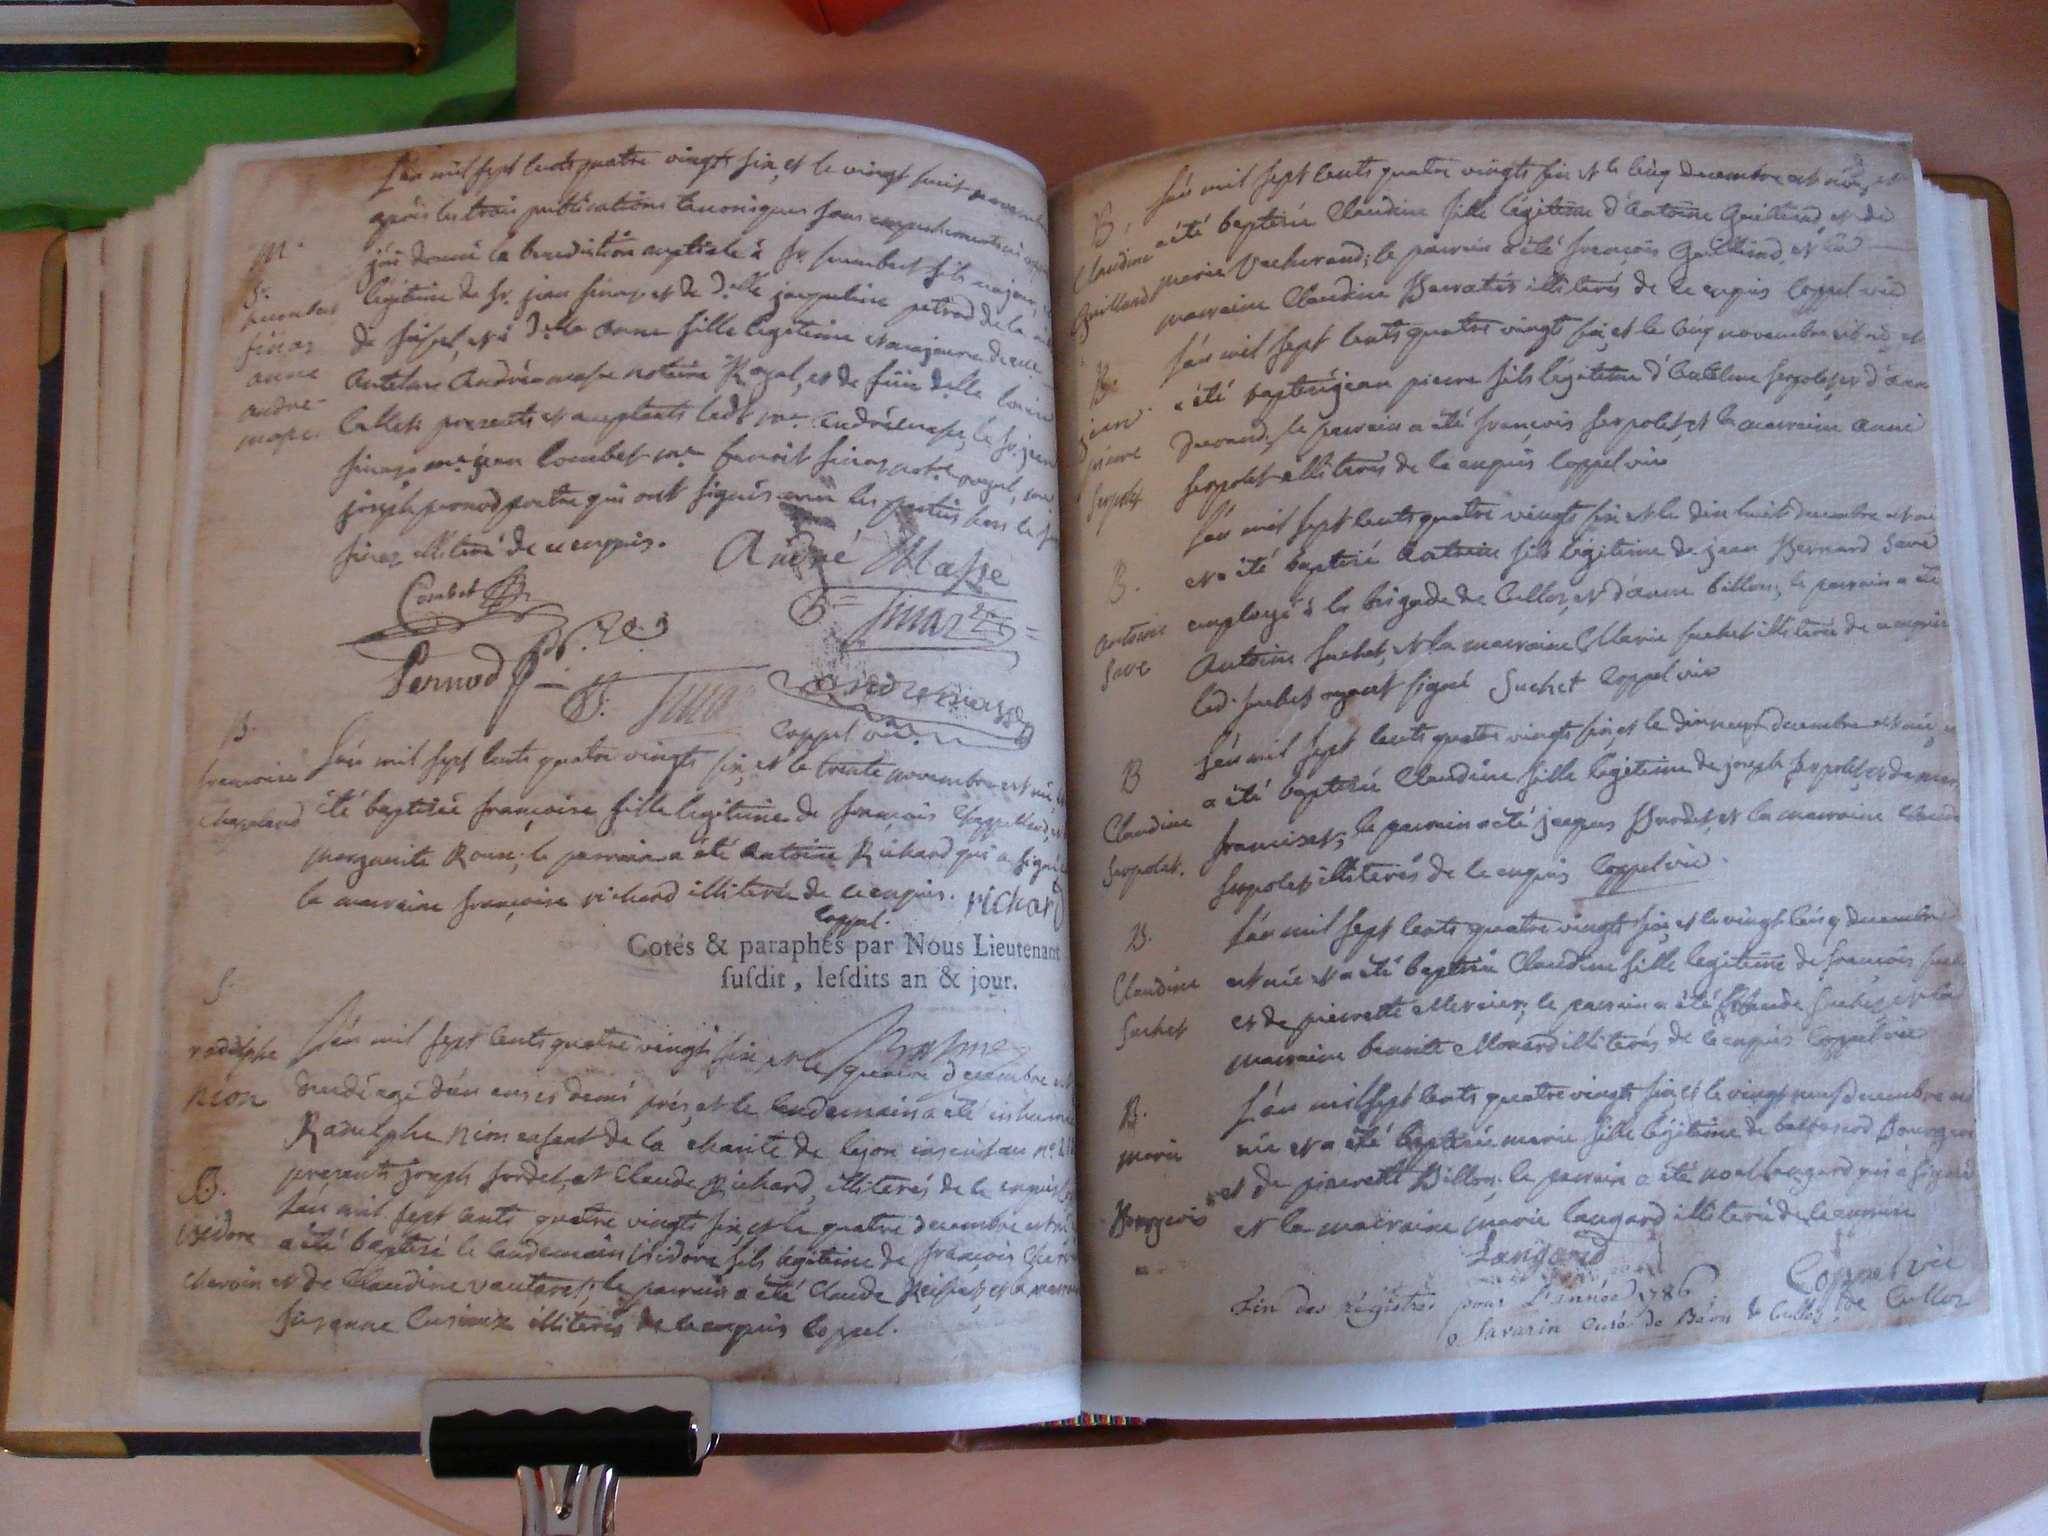 L'an mil sept cents quatre vingts six, et le vingt huit novembre
après les trois publications canoniques sans empechements
j'ai donné la benediction nuptiale à Sr. humbert fils majeur
légitime de Sr. jean sinaz et de Delle jacqueline petrod de la
de et à Delle anne fille legitime et majeure de me
antelme André masse notaire Royal, et de füe delle
Callet presents et acceptants ledt me andrémasse, le Sr. jean
sinaz me jean Combet me benoit sinaz notre royal, me
joseph pernod pretre qui ont signés avec les parties hors le
sinaz illiteré de ce enquis.
M.
Sr.
humbert
sinaz
anne
andre-
masse.
André Masse
Combet
B= Sinaz
Pernod ptre
J. Sina
andremasse
Coppel vic.
B.
francoise
Chapeland
L'an mil sept cents quatre vingts six, et le trente novembre est née, et
été baptisée françoise fille legitime de françois Chappelland, et
marguerite Roux; le parrain a été antoine Richard qui a signé
la marraine françoise richard illiterée de ce enquis. richard
Coppel.
Cotés & paraphés par Nous Lieutenant
ſuſdit, leſdits an & jour.
S.
radulphe
nion
L'an mil sept cents quatre vingt six et le quatre decembre est
decedé agé d'un an et demi près, et le lendemain a été inhumé
Radulphe nion enfant de la charité de lyon inscrit au no.
presents joseph sordet, et Claude Richard, illiterés de ce enquis
B.
isidore
chervin
L'an mil sept cents quatre vingts six, et le quatre decembre est né
a été baptisé le lendemain isidore fils legitime de françois Cher
et de Claudine vautaret; le parrain a été Claude et la marraine
Susanne illiterés de ce enquis Coppel.
B.
Claudine
Guilland
L'an mil sept cents quatre vingts six et le cinq decembre est née, et
a été baptisée Claudine fille légitime d'antoine Guilland, et de
marie Vacherand; le parrain a été françois Guilland, et la
marraine Claudine illiterés de ce enquis Coppel vic
B.
jean
pierre
Serpolet
L'an mil sept cents quatre vingt six, et le cinq novembre est né et
a été baptisé jean pierre fils légitime d'antelme Serpolet, et d'anne
Durand, le parrain a été françois Serpolet, et la marraine anne
Serpolet illiterés de ce enquis Coppel vic
B.
Antoine
Save
L'an mil sept cents quatre vingts six et le dix huit decembre est né
et a été baptisé Antoine fils légitime de jean Bernard Save
employé à la brigade de Culloz, et d'anne billon; le parrain a été
Antoine Suchet, et la marraine Marie Suchet illiterée de ce enquis
led. Suchet ayant signé Suchet Coppel vic
B
Claudine
Serpolet.
L'an mil sept cents quatre vingts six, et le dix neuf decembre est née, et
a été baptisée Claudine fille legitime de joseph Serpolet, et de
francises; le parrain a été jacques Burdet, et la marraine Claudine
Serpolet illiterés de ce enquis Coppel vic.
B.
Claudine
Suchet
L'an mil sept cents quatre vingts six, et le vingt cinq decembre
est née et a été baptisée Claudine fille legitime de françois Suchet
et de pierrette Mercier; le parrain a été Claude Suchet, et la
marraine benoite Monard illiterés de ce enquis Coppel vic
B.
marie
Bourgeois
L'an mil sept cents quatre vingts six, et le vingt neuf decembre est
née et a été baptisée marie fille légitime de baltazard Bourgeois
et de pierrette Billon. le parrain a été noel langard qui a signé
et la marraine marie langard illiterée de ce enquise
Langard
Coppel vic
de Culloz
Fin des régistres pour l'année 1786
Savarin curé de Béon & Culloz.